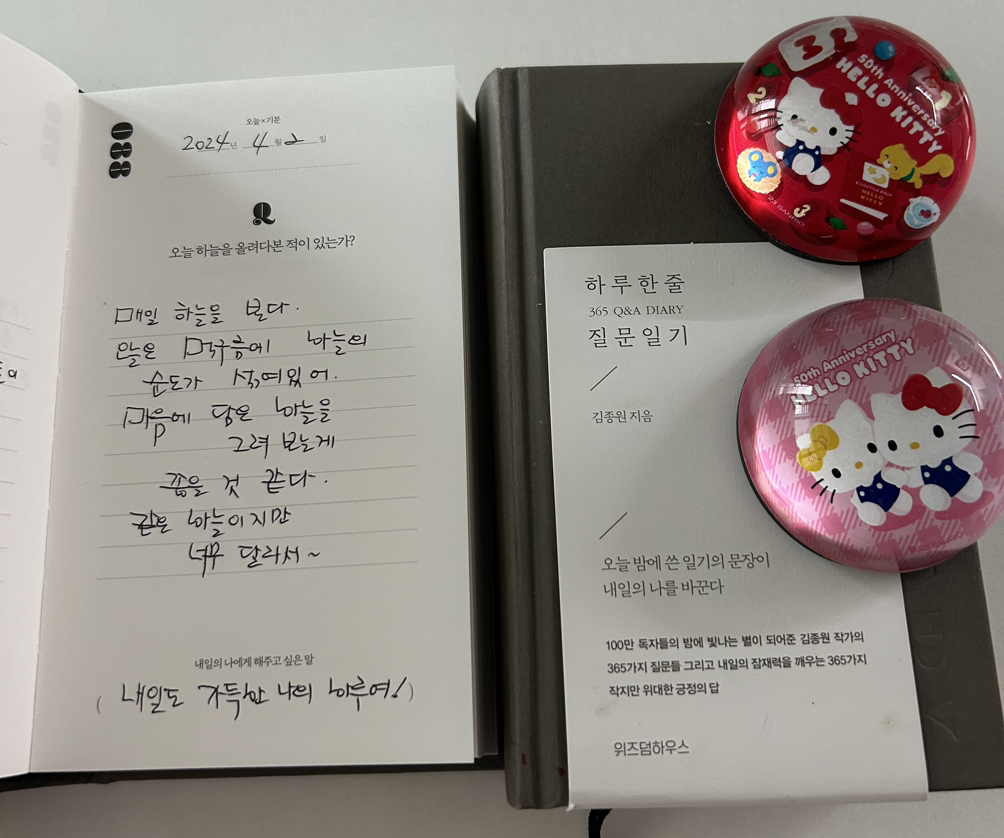 088
오늘×기분
2024년 4월 2일
Q
오늘 하늘을 올려다본 적이 있는가?
매일 하늘을 본다.
오늘은 먹구름에 하늘의
순도가 섞여있어.
마음에 담은 하늘을
그려 보는게
좋을 것 같다.
같은 하늘이지만
너무 달라서~
내일의 나에게 해주고 싶은 말
( 내일도 가득한 나의 하루여! )
하루 한 줄
365 Q&A DIARY
질문일기
김종원 지음
오늘 밤에 쓴 일기의 문장이
내일의 나를 바꾼다
100만 독자들의 밤에 빛나는 별이 되어준 김종원 작가의
365가지 질문들 그리고 내일의 잠재력을 깨우는 365가지
작지만 위대한 긍정의 답
위즈덤하우스
50th Anniversary
HELLO KITTY
1
2
3
HELLO
KITTY
50th Anniversary
HELLO KITTY